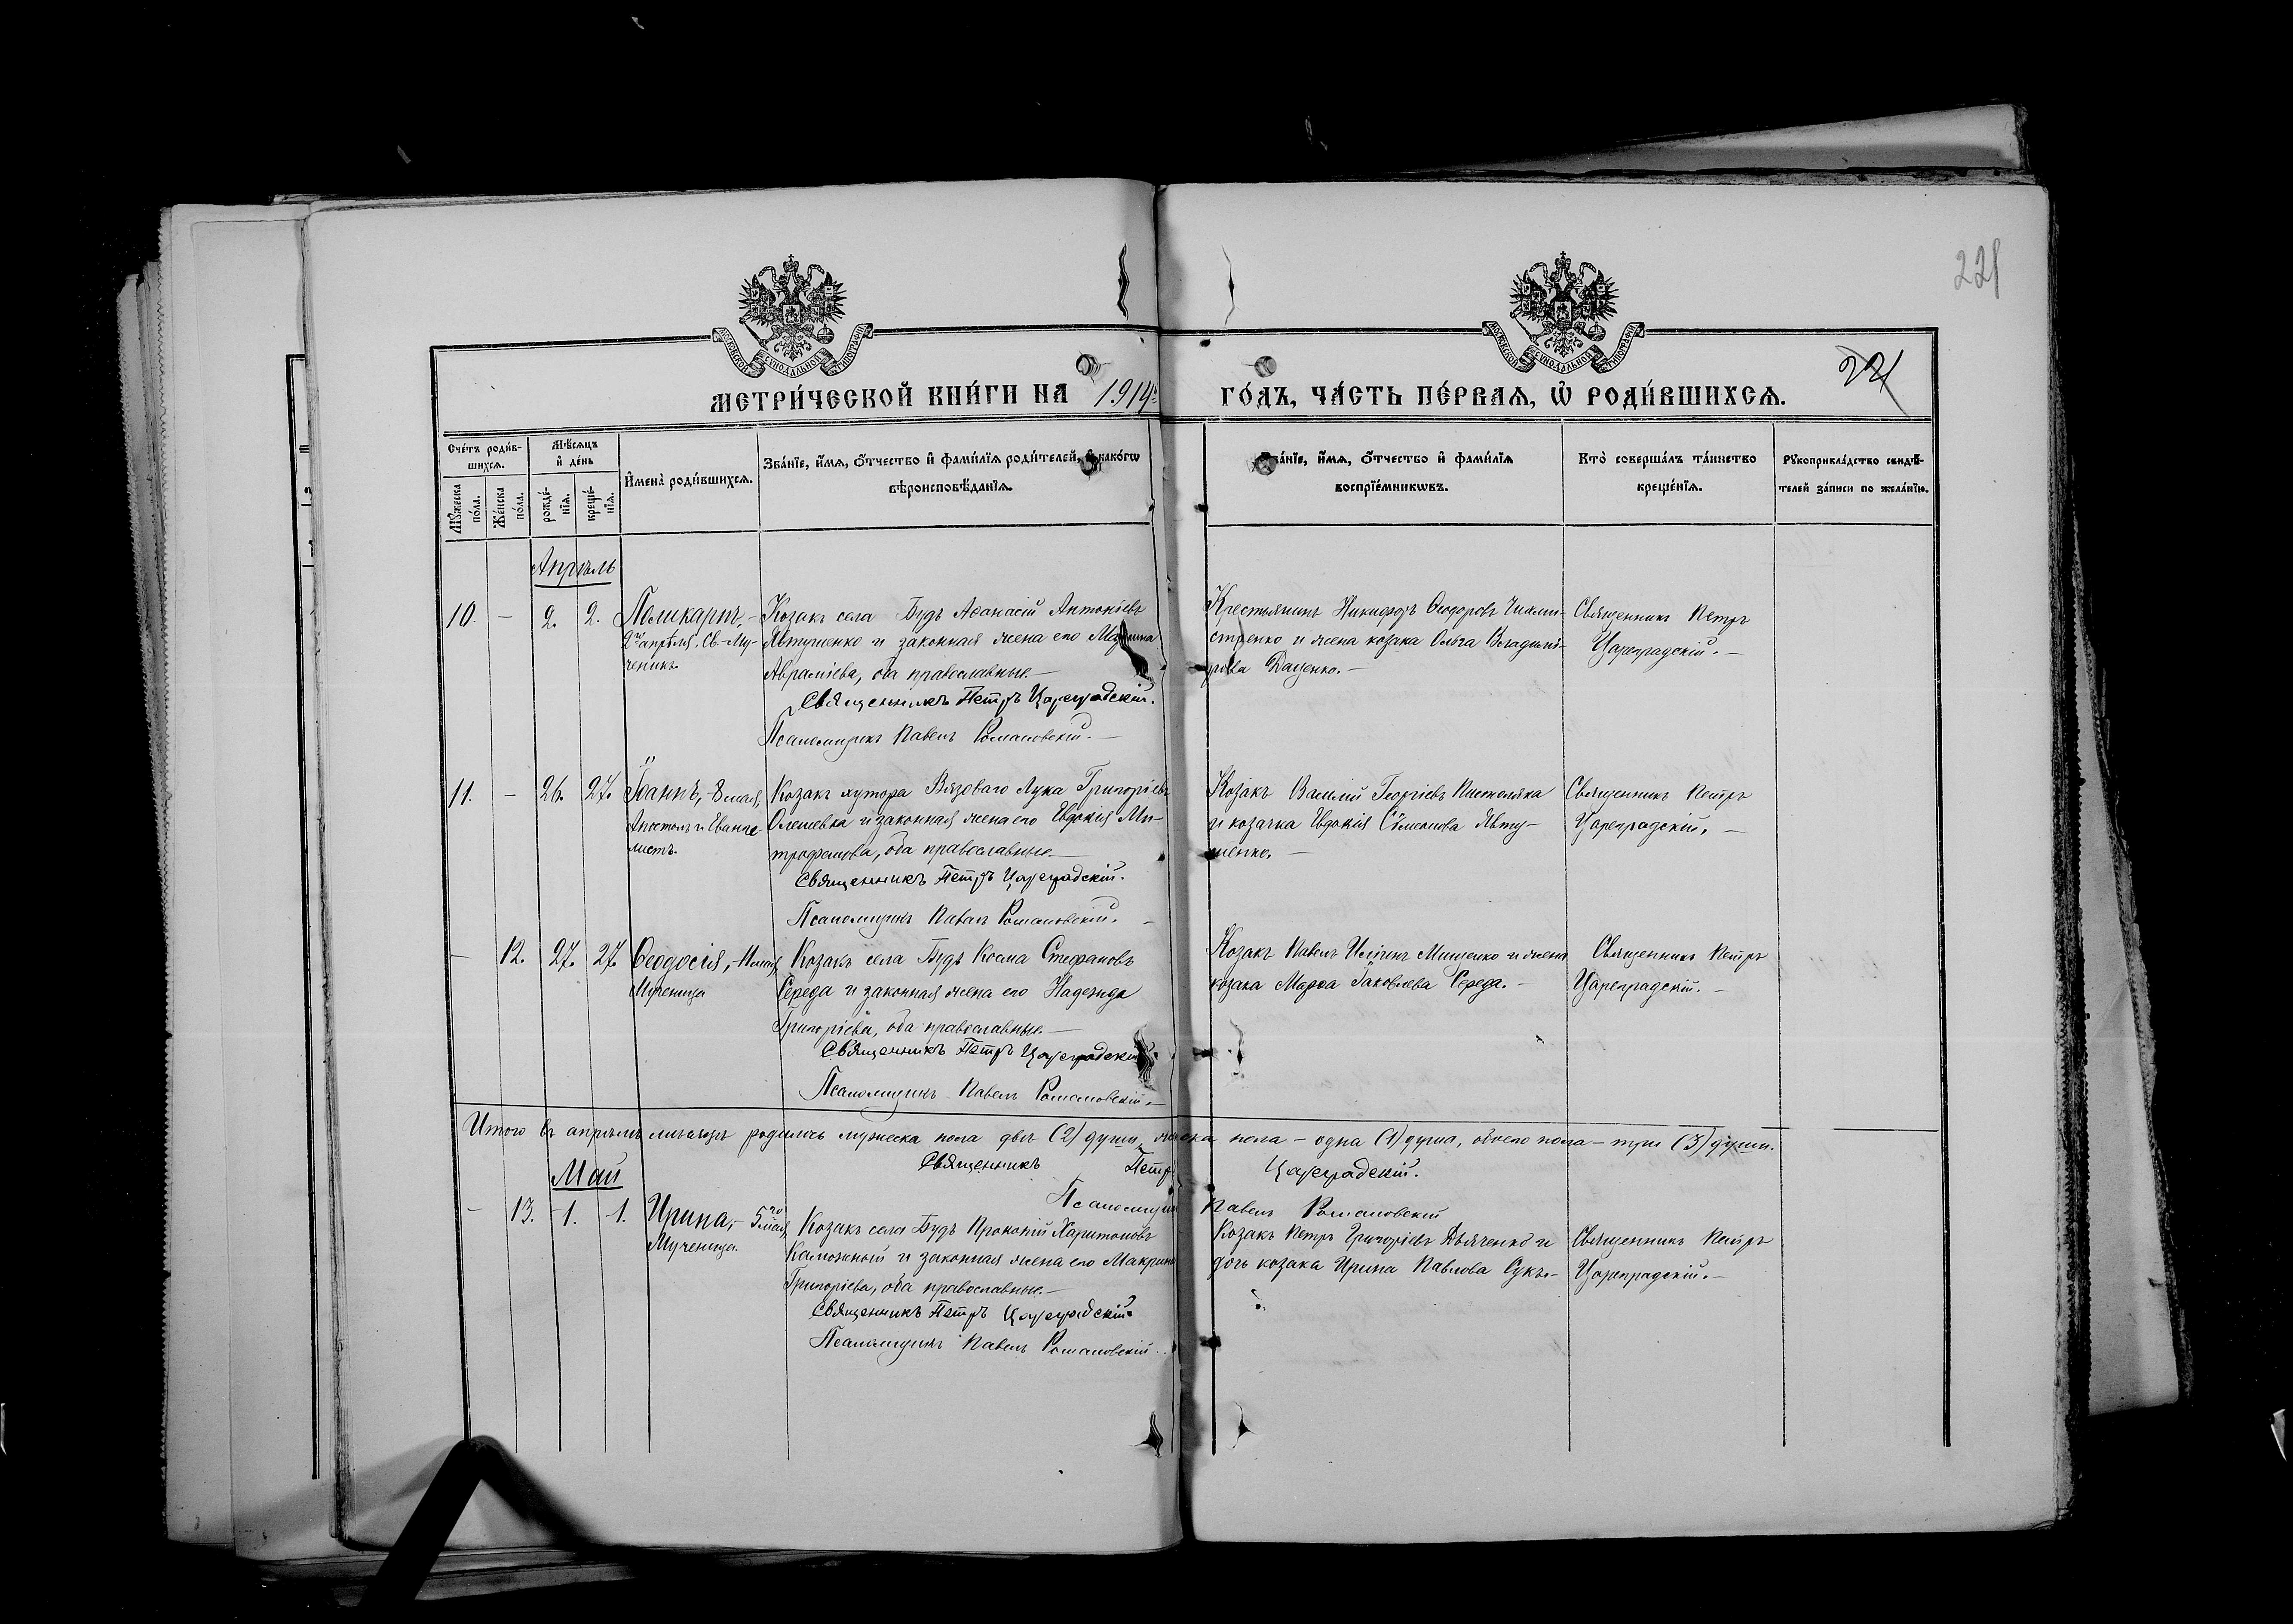 221
221
МЕТРИ́ЧЕСКОЙ КНИ́ГИ НА 1914 ГО́ДЪ, ЧА́СТЬ ПЕ́РВАЯ, Ѡ РОДИ́ВШИХСѦ.
Сче́тъ роди́в-
шихсѧ.
Мѣ́сѧцъ
и҆ де́нь
И҆мена̀ роди́вшихсѧ.
Зва́нїе, и҆́мѧ, ѻ҆́тчество и҆ фами́лїѧ роди́телей, и҆ како́гѡ
вѣроисповѣ́данїѧ.
Зва́нїе, и҆́мѧ, ѻ҆́тчество и҆ фами́лїѧ
воспрїе́мникѡвъ.
Кто̀ соверша́лъ та́инство
креще́нїѧ.
Рꙋкоприкла́дство свидѣ́-
телей за́писи по жела́нїю.
Мꙋ́жеска
по́ла.
Же́нска
по́ла.
рожде́-
нїѧ.
креще́-
нїѧ.
Апрѣль
10. — 2. 2. Поликарпъ, -
2го апрѣля, Св. Му-
ченикъ.
Козакъ села Будъ Аѳанасій Антоніевъ
Явтушенко и законная жена его Марина
Авраміева, оба православные. —
Священникъ Петръ Цареградскій.
Псаломщикъ Павелъ Романовскій. —
Крестьянинъ Никифоръ Ѳеодоровъ
и жена козака Ольга Владимі-
рова Даценко. —
Священникъ Петръ
Цареградскій. —
11. — 26. 27. Іоаннъ, - 8 мая,
Апостолъ и Еванге-
листъ.
Козакъ хутора Вязоваго Лука Григоріевъ
Олешевка и законная жена его Евдокія Ми-
трофанова, оба православные. —
Священникъ Петръ Цареградскій.
Псаломщикъ Павелъ Романовскій. —
Козакъ Василій Георгіевъ Пистоляка
и козачка Евдокія Сѵмеонова Явту-
шенко. —
Священникъ Петръ
Цареградскій. —
— 12. 27. 27. Ѳеодосія, - мая,
Мученица
Козакъ села Будъ Косма Стефановъ
Середа и законная жена его Надежда
Григоріева, оба православные. —
Священникъ Петръ Цареградскій.
Псаломщикъ Павелъ Романовскій. —
Козакъ Павелъ Иліинъ Мищенко и жена
козака Марѳа Іаковлева Середа. —
Священникъ Петръ
Цареградскій. —
Итого въ апрѣлѣ мѣсяцѣ родилось мужеска пола двѣ (2) души, женска пола — одна (1) душа, обоего пола — три (3) души.
Священникъ Петръ Цареградскій.
Псаломщикъ Павелъ Романовскій
Май
— 13. 1. 1. Ирина, - 5го мая,
Мученица.
Козакъ села Будъ Прокопій Харитоновъ
и законная жена его Макрина
Григоріева, оба православные. —
Священникъ Петръ Цареградскій.
Псаломщикъ Павелъ Романовскій.
Козакъ Петръ Григоріевъ Дьяченко и
дочь козака Ирина Павлова Сукъ. —
Священникъ Петръ
Цареградскій. —